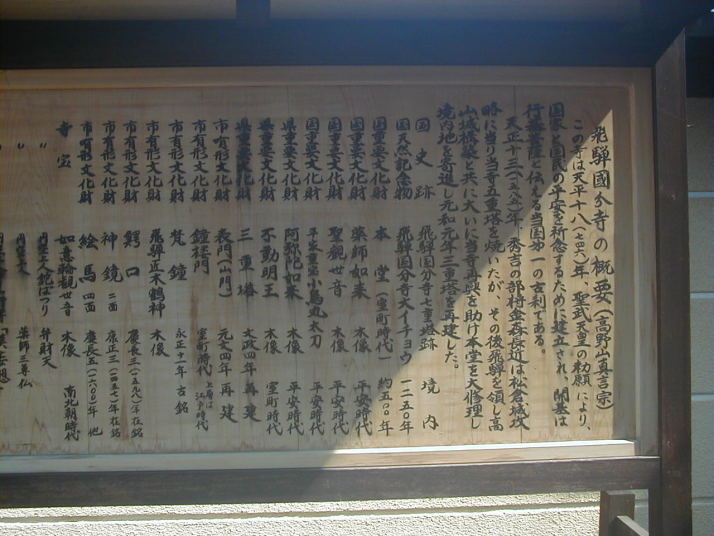 飛騨國分寺の概要(高野山真言宗)
この寺は天平十八(七四六)年、聖武天皇の勅願により、
国家と国民の平安を祈念するために建立され、開基は
行基菩薩と伝える当国第一の古刹である。
天正十三(一五八五)年秀吉の部将金森長近は松倉城攻
略に当り当寺五重塔を焼いたが、その後飛騨を領し高
山城構築と共に大いに当寺再興を助け本堂を大修理し
境内地を寄進し元和元年三重塔を再建した。
国史跡 飛騨国分寺七重塔跡 境内
国天然記念物 飛騨国分寺大イチョウ 一二五〇年
国重要文化財 本堂(室町時代) 約五〇〇年
国重要文化財 薬師如来 木像 平安時代
国重要文化財 聖観世音 木像 平安時代
国重要文化財 平家重宝小烏丸太刀 平安時代
県重要文化財 阿弥陀如来 木像 室町時代
県重要文化財 不動明王 木像 室町時代
県重要文化財 三重塔 文政四年再建
市有形文化財 表門(山門) 元文四年再建
市有形文化財 鐘楼門 室町時代 上層は江戸時代
市有形文化財 梵鐘 永正十一年古銘
市有形文化財 飛騨匠木鶴神 木像
市有形文化財 鰐口 慶長三(一五九八)年在銘
市有形文化財 神鏡 二面 康正三(一四五七)年在銘
市有形文化財 絵馬 四面 慶長五(一六〇〇)年 他
寺宝 如意輪観世音 木像 南北朝時代
〃 円空上人鉈ばつり 弁財天
〃 円空上人 薬師三尊仏